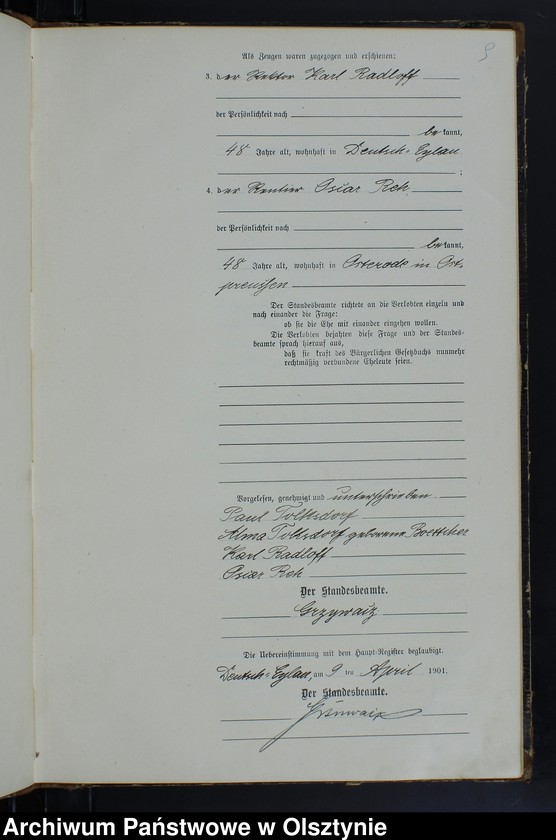 Als Zeugen waren zugezogen und erschienen:
3. der Rektor Karl Radloff
der Persönlichkeit nach
bekannt,
48 Jahre alt, wohnhaft in Deutsch-Eylau
;
4. der Rentier Oscar Reh
der Persönlichkeit nach
bekannt,
48 Jahre alt, wohnhaft in Osterode in Ost-
preussen
Der Standesbeamte richtete an die Verlobten einzeln und
nach einander die Frage:
ob sie die Ehe mit einander eingehen wollen.
Die Verlobten bejahten diese Frage und der Standes-
beamte sprach hierauf aus,
daß sie kraft des Bürgerlichen Gesetzbuchs nunmehr
rechtmäßig verbundene Eheleute seien.
Vorgelesen, genehmigt und unterschrieben
Paul Tolksdorf
Alma Tolksdorf geborene Boettcher
Karl Radloff
Oscar Reh
Der Standesbeamte.
Grzywaiz
Die Uebereinstimmung mit dem Haupt-Register beglaubigt.
Deutsch-Eylau, am 9 ten April 1901.
Der Standesbeamte.
Archiwum Państwowe w Olsztynie